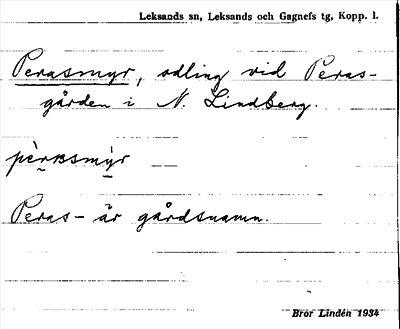 Leksands sn, Leksands och Gagnefs tg, Kopp. l.
Perasmyr, odling vid Peras-
gården i N. Lindberg.
pèrasmỳr
Peras- är gårdsnamn.
Bror Lindén 1934